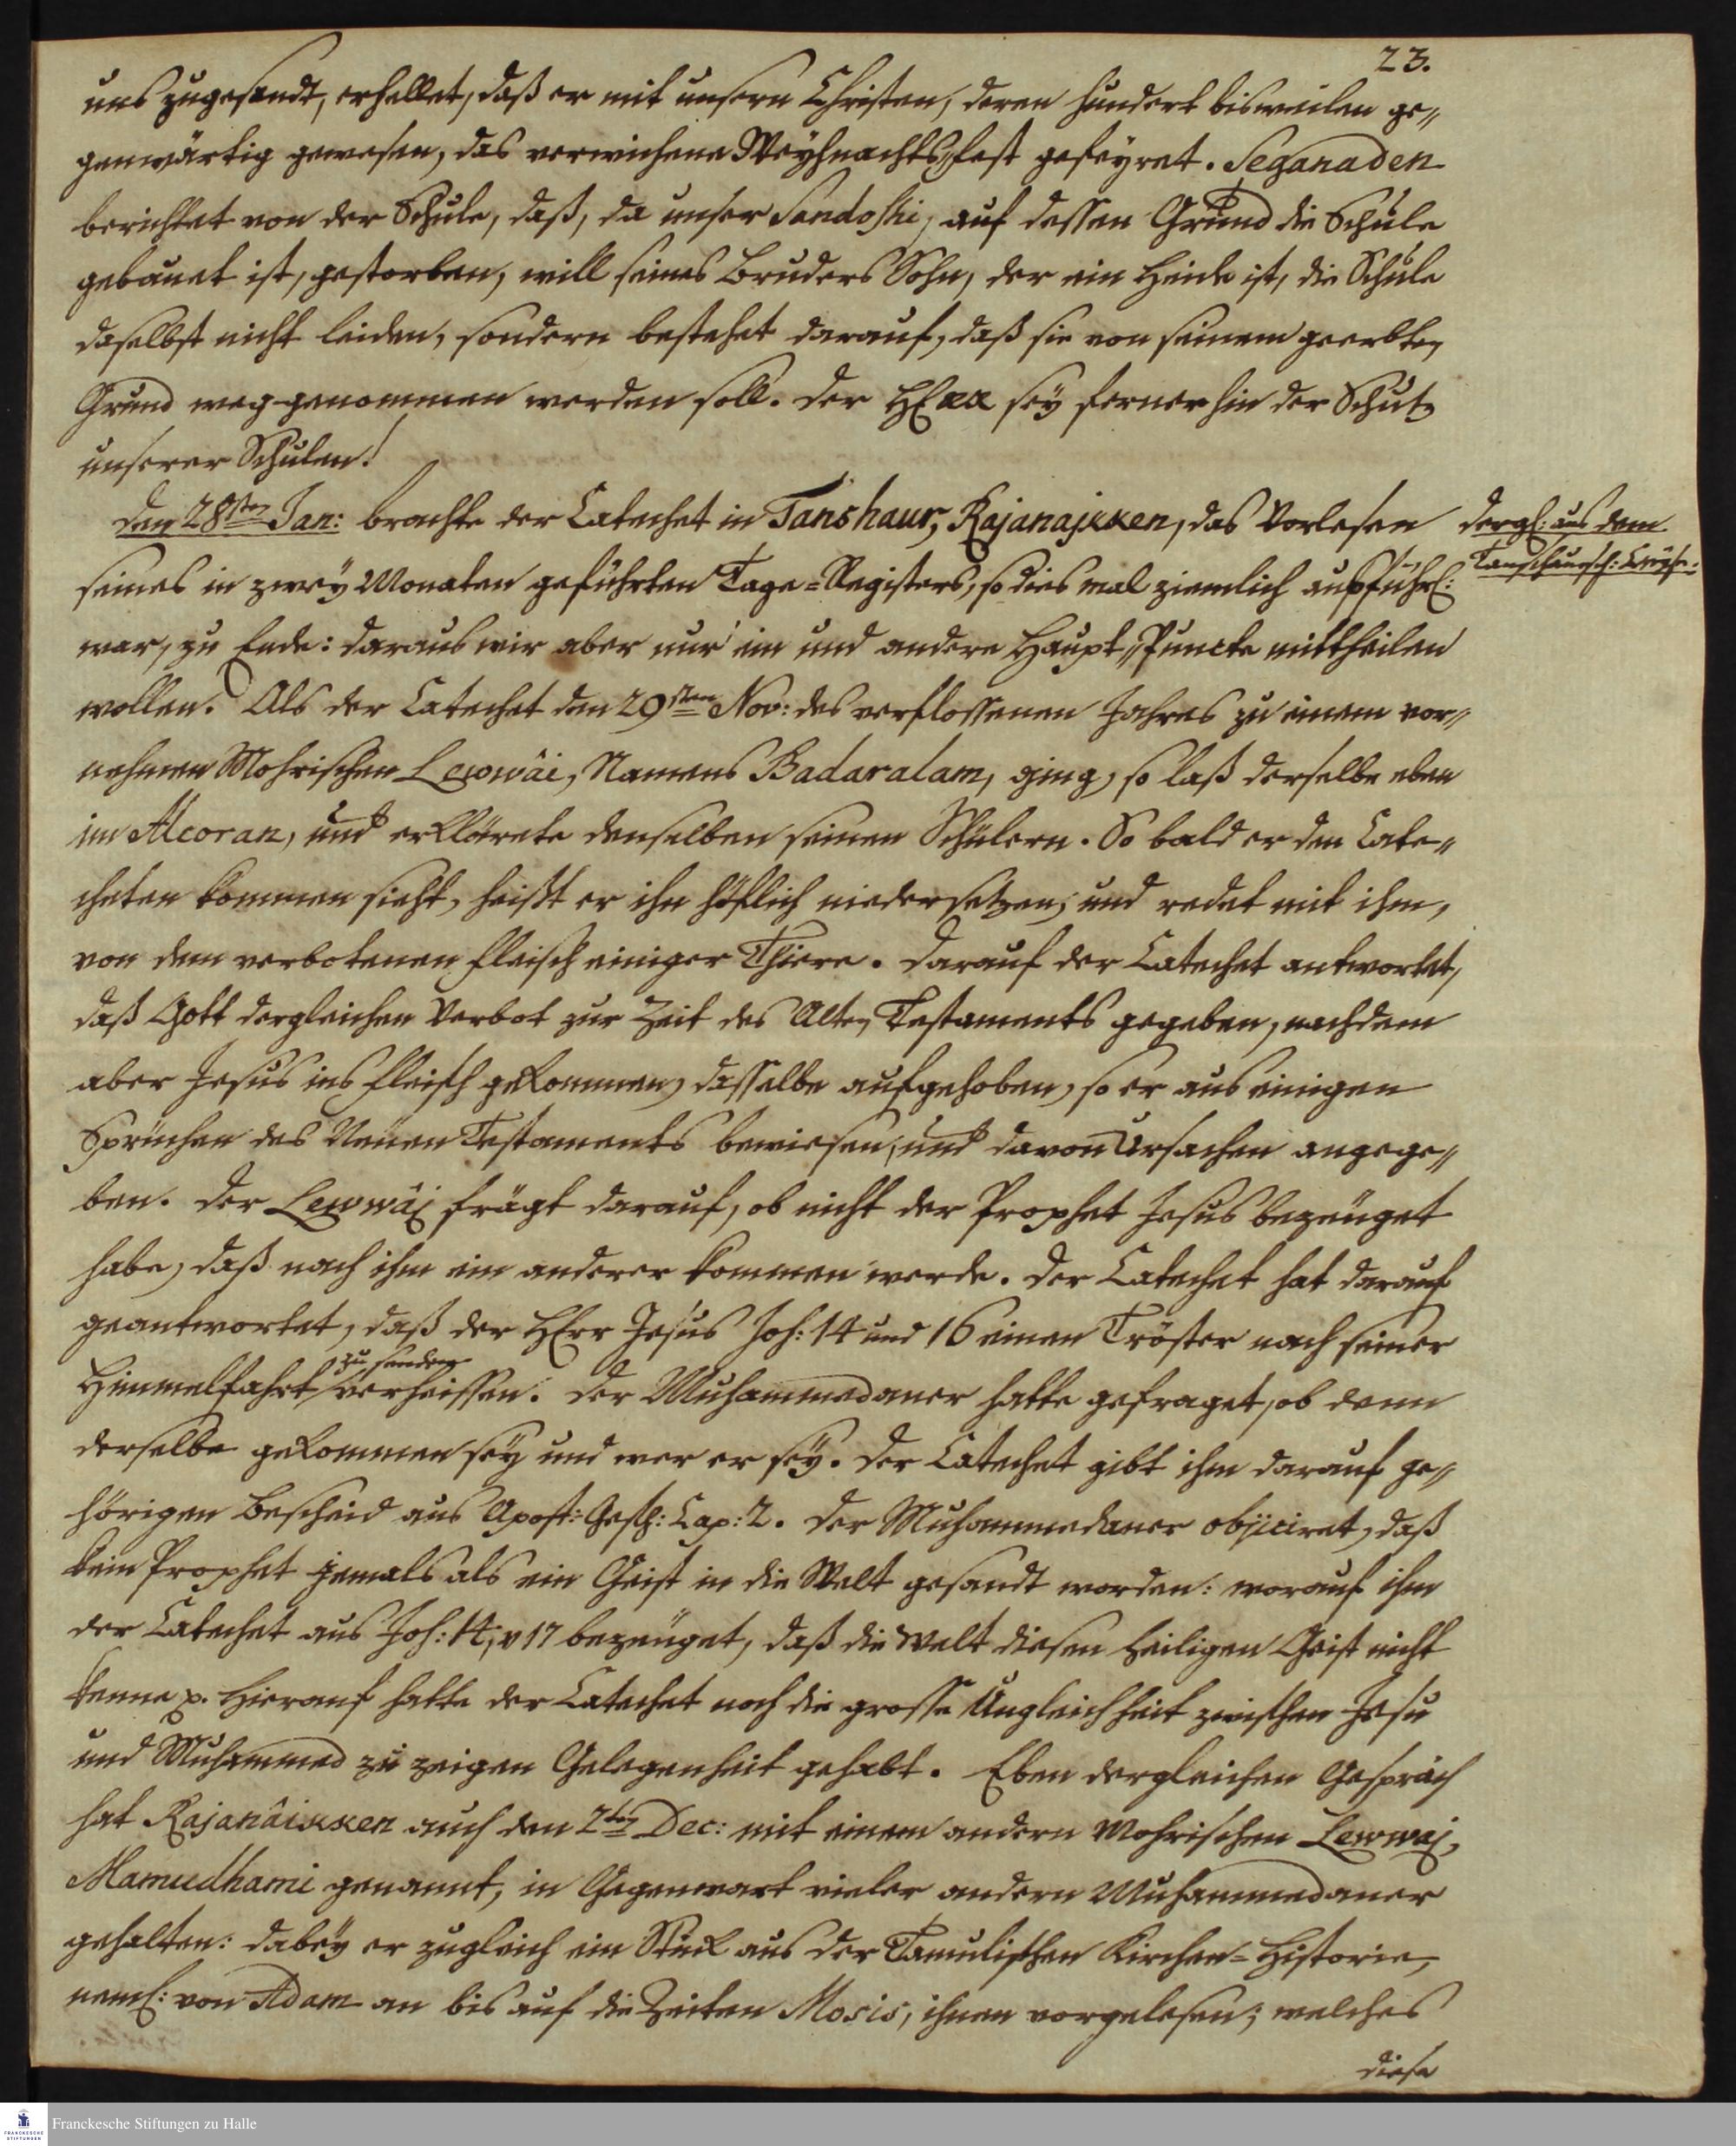 23.
uns zugesandt, erhellet, daß er mit unsern Christen, deren hundert bisweilen ge„
genwärtig gewesen, das verwichene Weyhnachts„Fest gefeyret. Seganaden
berichtet von der Schule, daß, da unser Sandoshi, auf dessen Grund die Schule
gebauet ist, gestorben, will seines Bruders Sohn, der ein Heide ist, die Schule
daselbst nicht leiden, sondern bestehet darauf, daß sie von seinem geerbten
Grund weggenommen werden soll. Der HErr sey fernerhin der Schutz
unserer Schulen!
Den 28sten Jan: brachte der Catechet in Tanshaur, Rajanajkken, das Vorlesen
seines in zwey Monaten geführten Tage=Registers, so dies mal ziemlich ausführl:
war, zu Ende: daraus wir aber nur ein und andere Haupt„Puncte mittheilen
wollen. Als der Catechet den 29sten Nov: des verflossenen Jahres zu einem vor„
nehmen Mohrischen Lewwâi, Namens Badaralam, ging, so laß derselbe eben
im Alcoran, und erklärete denselben seinen Schülern. So bald er den Cate„
cheten kommen sieht, heißt er ihn höflich niedersetzen; und redet mit ihm,
von dem verbotenen Fleisch einiger Thiere. Darauf der Catechet antwortet,
daß Gott dergleichen Verbot zur Zeit des Alten Testaments gegeben, nachdem
aber Jesus ins Fleisch gekommen, dasselbe aufgehoben, so er aus einigen
Sprüchen des Neuen Testaments bewiesen, und davon Ursachen angege„
ben. Der Lewwâj frägt darauf, ob nicht der Prophet Jesus bezeuget
habe, daß nach ihm ein anderer kommen werde. Der Catechet hat darauf
geantwortet, daß der HErr Jesus Joh: 14 und 16 einen Tröster nach seiner
Himmelfahrt zu senden verheissen. Der Muhammedaner hatte gefraget, ob denn
derselbe gekommen sey und wer er sey. Der Catechet gibt ihm darauf ge„
hörigen Bescheid aus Apost: Gesch: Cap: 2. Der Muhammedaner objiciret, daß
kein Prophet jemals als ein Geist in die Welt gesandt worden: worauf ihm
der Catechet aus Joh: 14, v 17 bezeuget, daß die Welt diesen heiligen Geist nicht
kenne p. Hierauf hatte der Catechet noch die grosse Ungleichheit zwischen Jesu
und Muhammed zu zeigen Gelegenheit gehabt. Eben dergleichen Gespräch
hat Rajanâikken auch den 2ten Dec: mit einem andern Mohrischen Lewwaj,
Mamudhami genannt, in Gegenwart vieler andern Muhammedaner
gehalten: dabey er zugleich ein Stück aus der Tamulischen Kirchen=Historie,
neml: von Adam an bis auf die Zeiten Mosis, ihnen vorgelesen; welches
diese
dergl: aus dem
Tanschaursch: Creyse.
Franckesche Stiftungen zu Halle
FRANCKESCHE
STIFTUNGEN